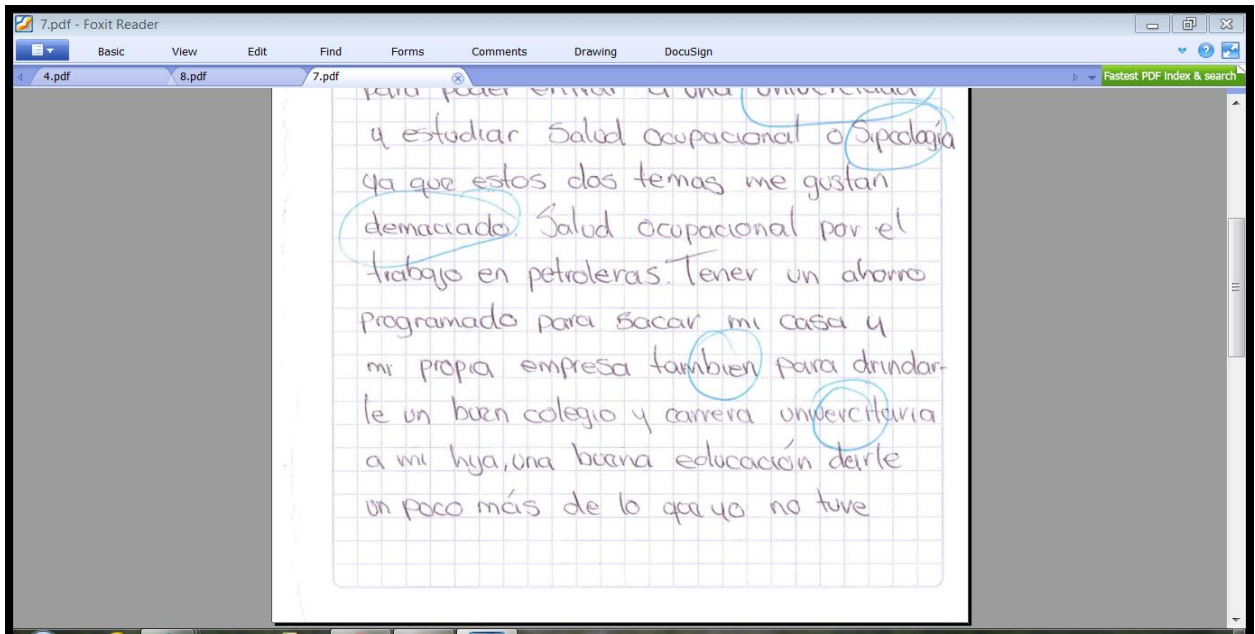 7.pdf - Foxit Reader
Basic View Edit Find Forms Comments Drawing DocuSign
4.pdf 8.pdf 7.pdf Fastest PDF Index & search
para poder entrar a una univercidad
y estudiar Salud ocupacional o Sipcología
ya que estos dos temas me gustan
demaciado. Salud ocupacional por el
trabajo en petroleras. Tener un ahorro
programado para sacar mi casa y
mi propia empresa tambien para drindar-
le un buen colegio y carrera univercitaria
a mi hija, una buena educación darle
un poco más de lo que yo no tuve